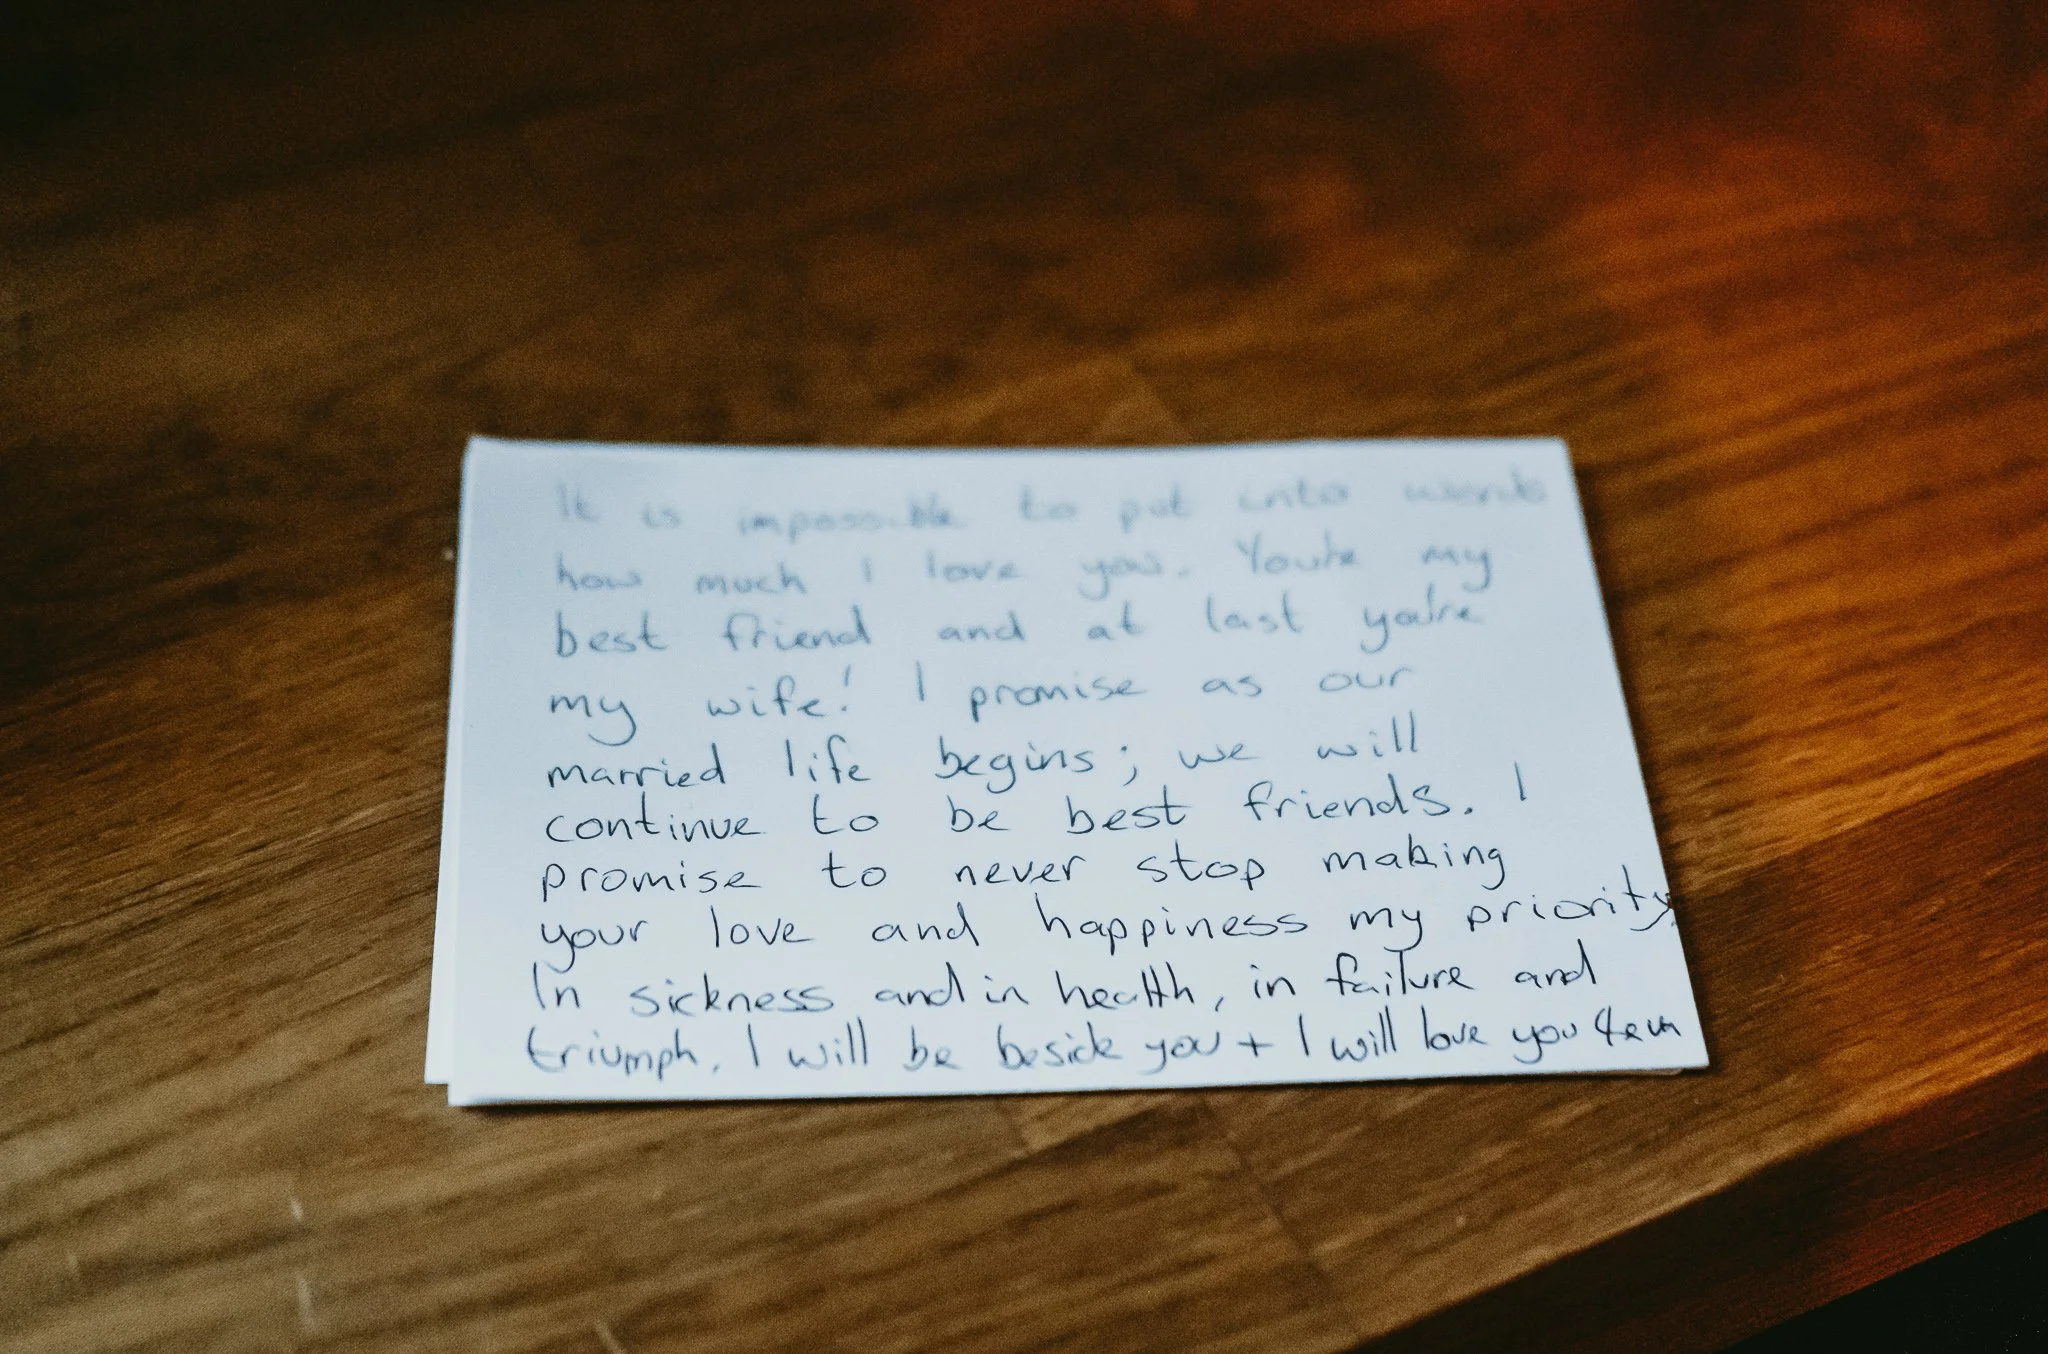 It is impossible to put into words
how much I love you. You're my
best friend and at last you're
my wife! I promise as our
married life begins; we will
continue to be best friends. I
promise to never stop making
your love and happiness my priority.
In sickness and in health, in failure and
triumph. I will be beside you + I will love you 4eva